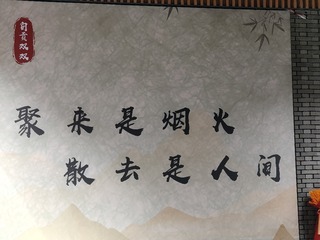 自贡双双
聚来是烟火
散去是人间